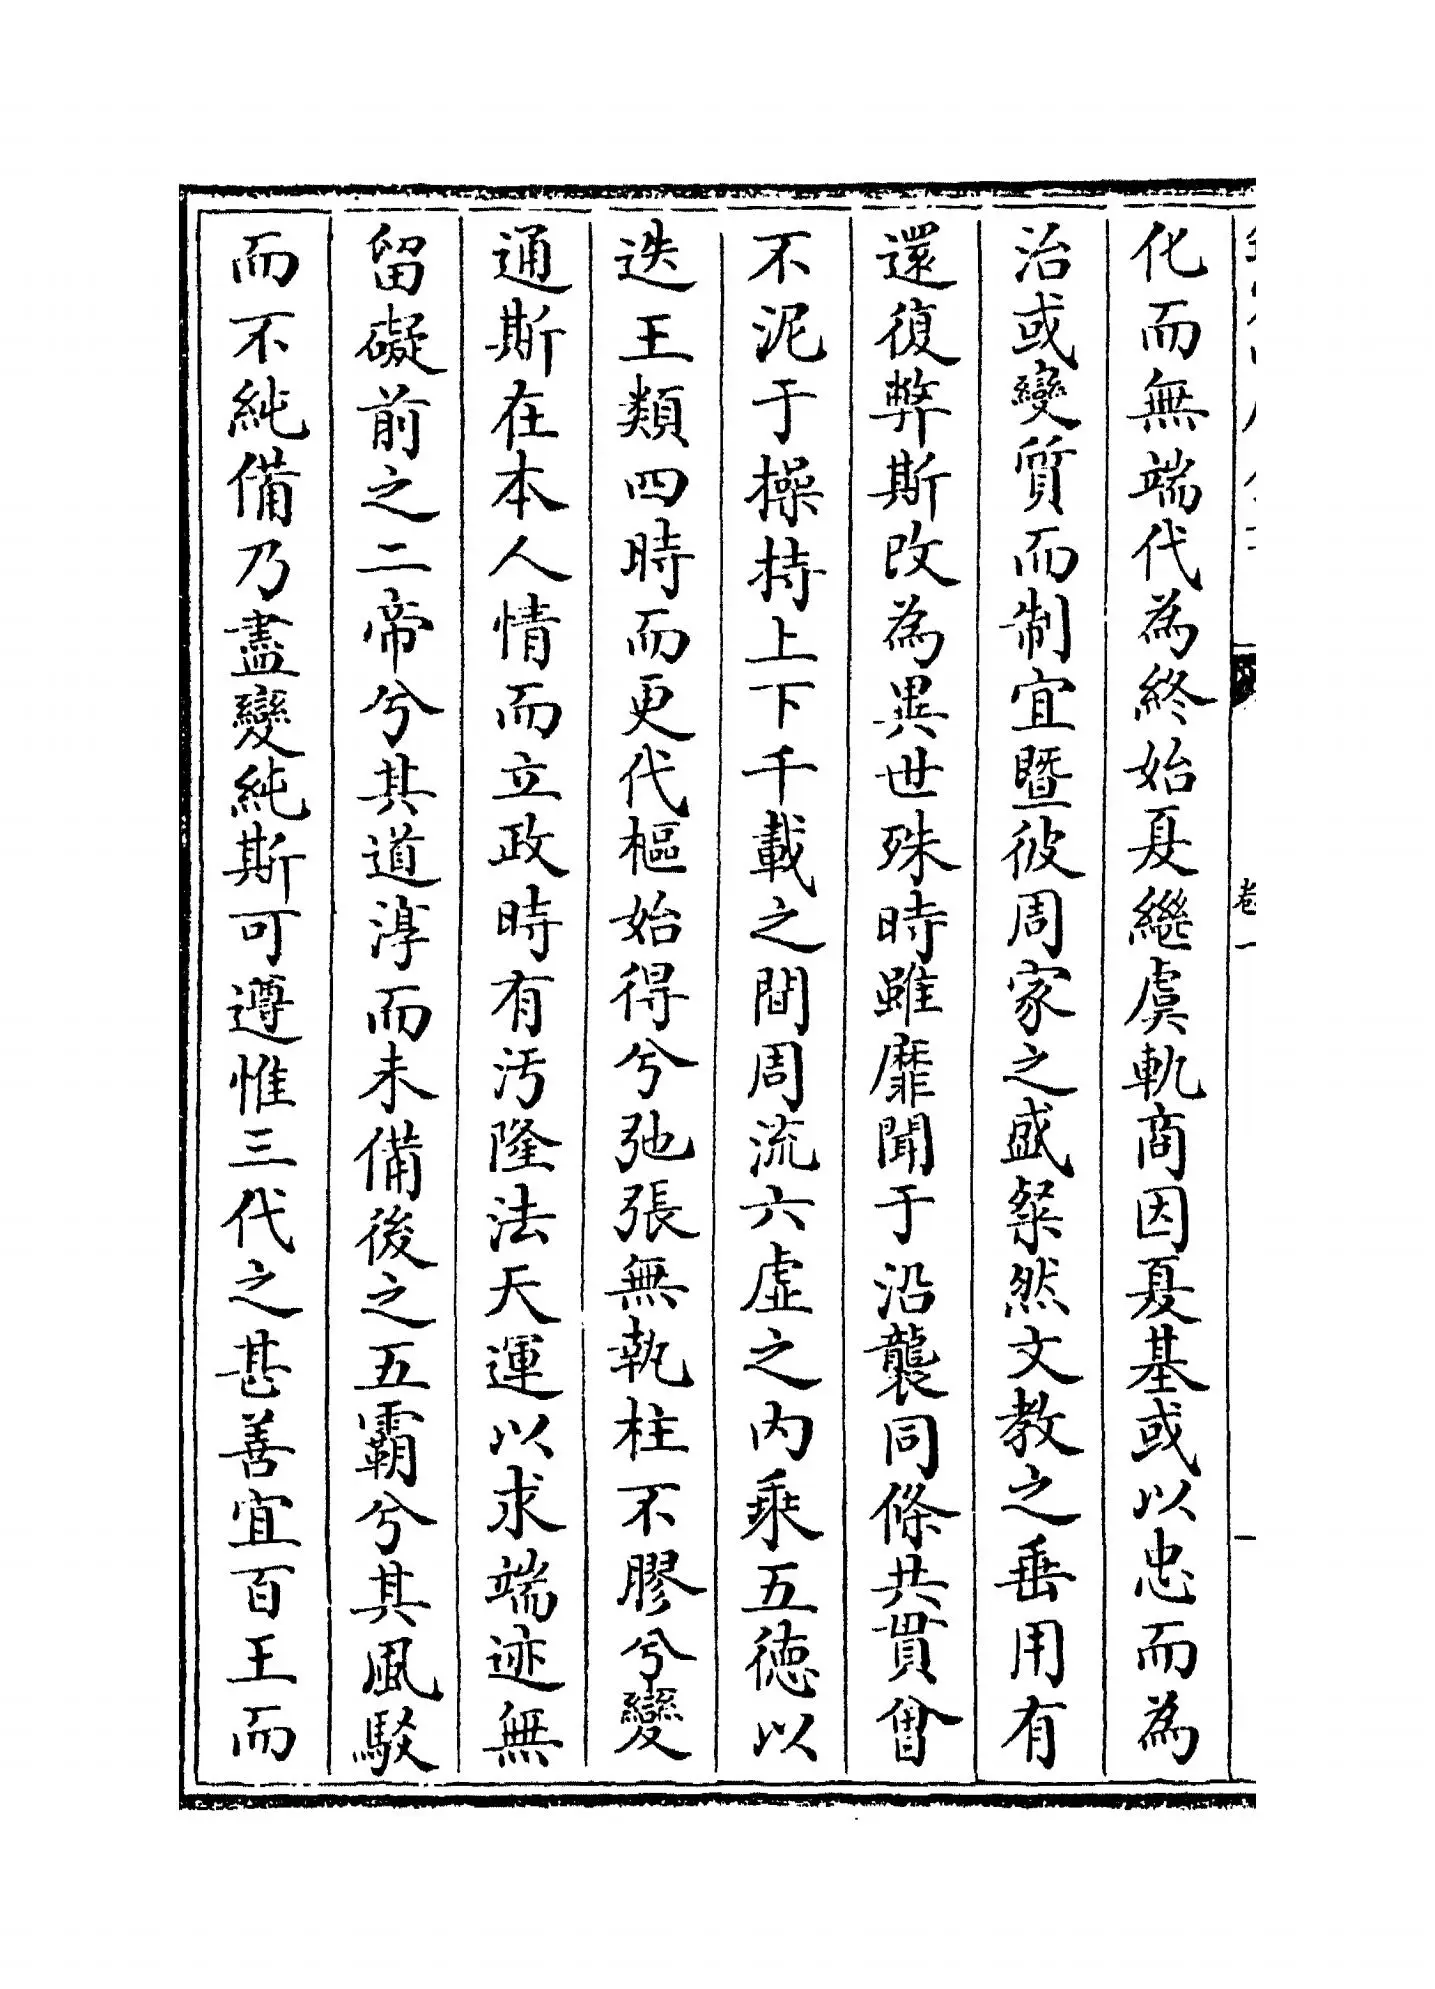 化而無端代為終始夏繼虞軌商因夏基或以忠而為
治或變質而制宜暨彼周家之盛粲然文教之垂用有
還復弊斯改為異世殊時雖靡聞于沿襲同條共貫曾
不泥于操持上下千載之間周流六虛之内乘五徳以
迭王類四時而更代樞始得兮弛張無執柱不膠兮變
通斯在本人情而立政時有汚隆法天運以求端迹無
留礙前之二帝兮其道淳而未備後之五霸兮其風駁
而不純備乃盡變純斯可遵惟三代之甚善宜百王而
卷一